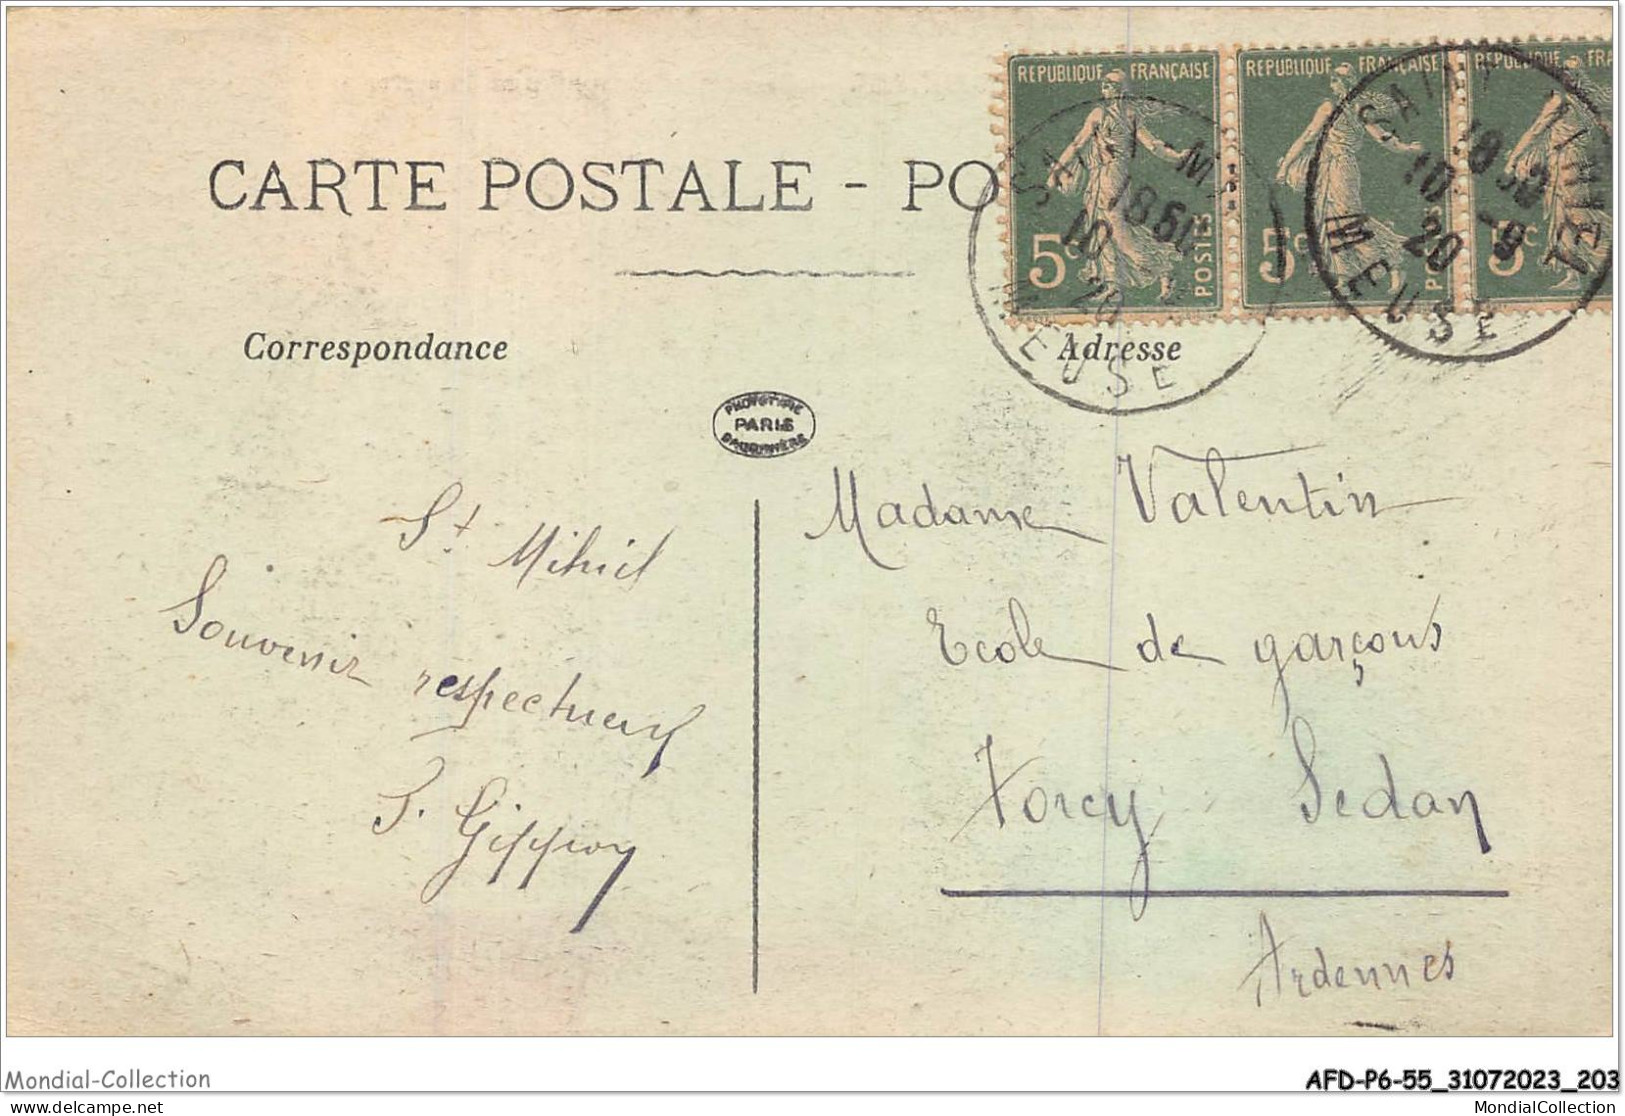 REPUBLIQUE FRANÇAISE REPUBLIQUE FRANÇAISE REPUBLIQUE FRANÇA
5c POSTES 5c POSTES 5c
SAINT-M
18 50
10
20
MEUSE
SAINT MIHIEL
18 50
10 -9
20
MEUSE
CARTE POSTALE - PO
Correspondance
Adresse
PHOTOTYPIE
PARIS
St Mihiel
Souvenir respectueux
Madame Valentin
Ecole de garçons
Torcy Sedan
Ardennes
Mondial-Collection
AFD-P6-55_31072023_203
delcampe.net
MondialCollection